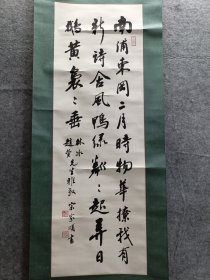 南浦東岡二月時物華撩我有
新詩含風鴨綠粼〻起弄日
鵝黃裊〻垂
先生雅教 宗家順書